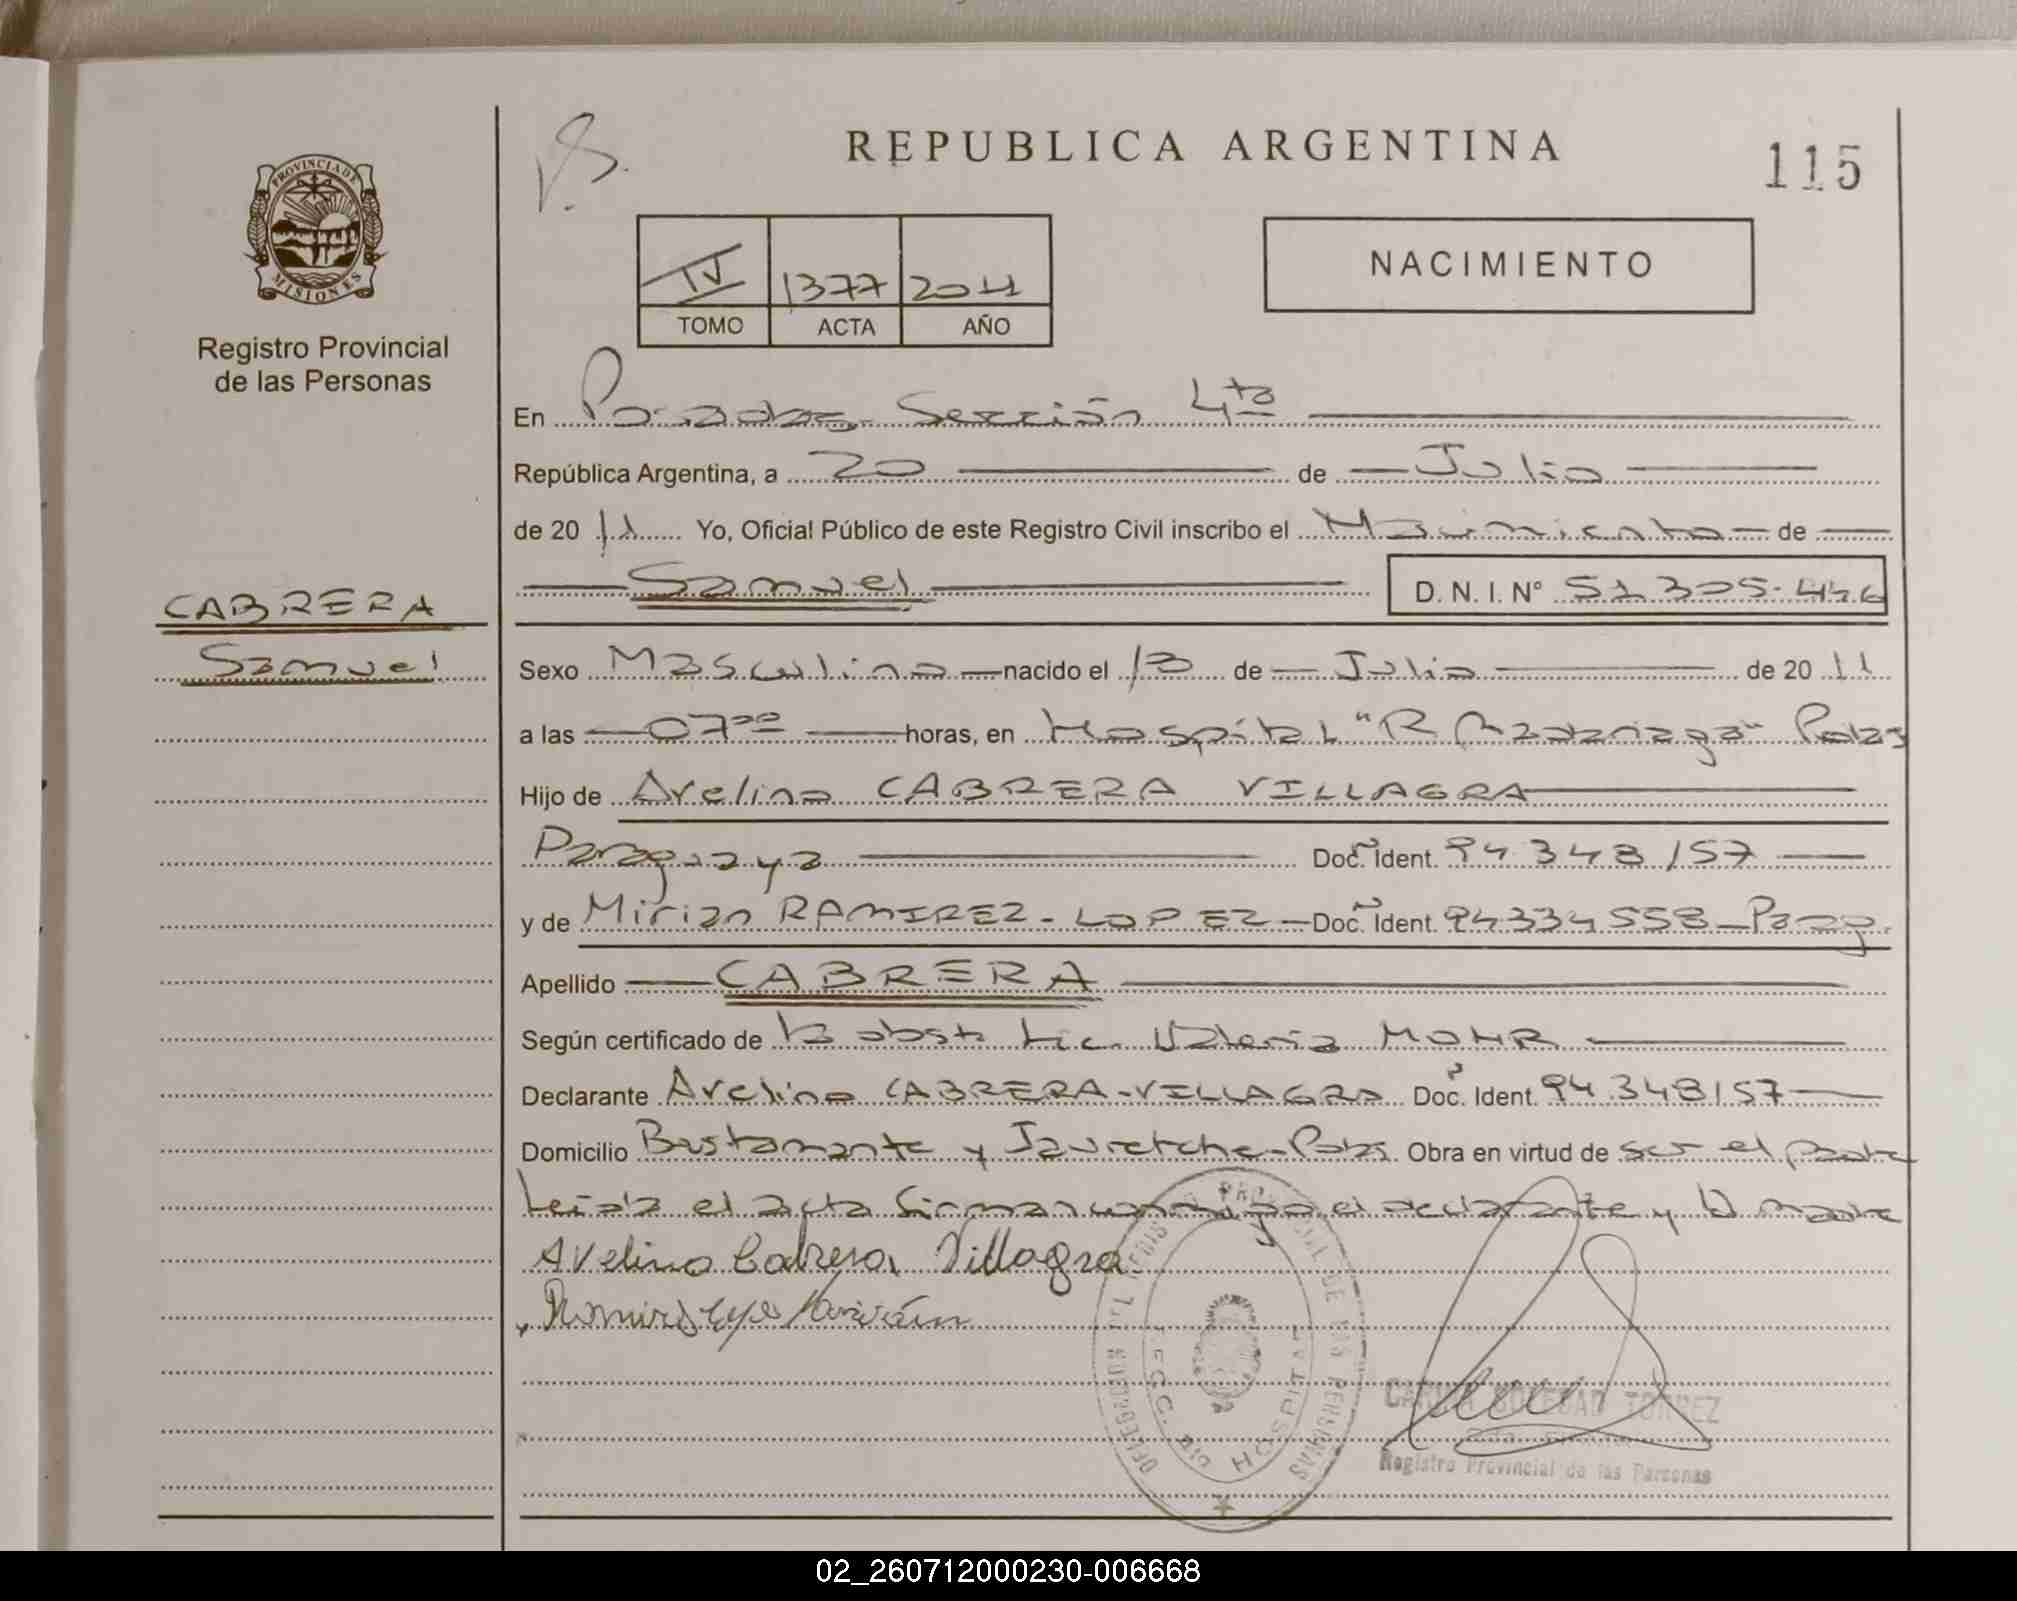 REPUBLICA ARGENTINA
115
PROVINCIA DE
MISIONES
Registro Provincial
de las Personas
IV 1377 2011
TOMO ACTA AÑO
NACIMIENTO
En Posadas Sección 4ta
República Argentina, a 20 de Julio
de 2011 Yo, Oficial Público de este Registro Civil inscribo el Nacimiento de
Samuel D. N. I. Nº 51.305.446
CABRERA
Samuel
Sexo Masculino nacido el 13 de Julio de 2011
a las 07⁰⁰ horas, en Hospital "R Madariaga" Pdas
Hijo de Avelino CABRERA VILLAGRA
Paraguaya Doc. Ident. 94 348 157
y de Mirian RAMIREZ - LOPEZ Doc. Ident. 94334558 Parag.
Apellido CABRERA
Según certificado de la obst. Lic. Valeria MOHR
Declarante Avelino CABRERA-VILLAGRA Doc. Ident. 94.348157
Domicilio Bustamante y Jauretche - Pdas. Obra en virtud de ser el padre
Leída el acta firman conmigo el declarante y la madre
Avelino Cabrera Villagra
REGISTRO PROVINCIAL DE LAS PERSONAS
SECC. 4ta HOSPITAL
SOLEDAD TORREZ
Registro Provincial de las Personas
02_260712000230-006668